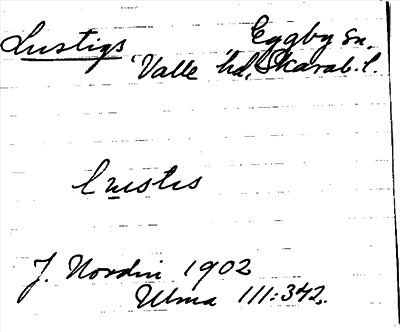 Lustigs Eggby sn.
Valle hd, Skarab. l.
lustis
J. Nordin 1902
Ulma 111:342.